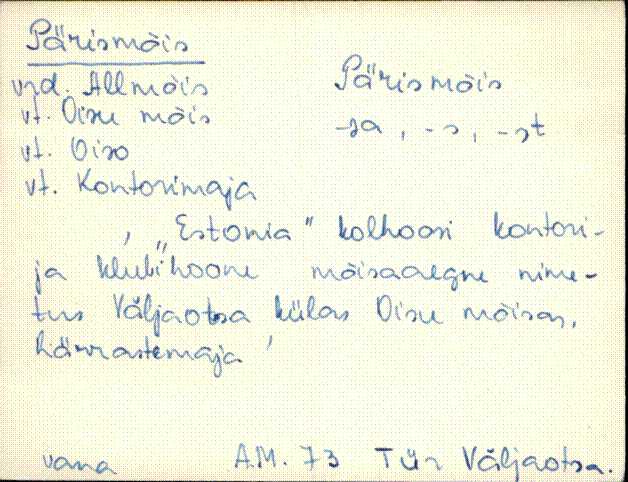 Pärismõis
vrd. Allmõis
vt. Oisu mõis
vt. Oiso
vt. Kontorimaja
Pärismõis
-sa, -s, -st
' „Estonia" kolhoosi kontori-
ja klubihoone mõisaaegne nime-
tus Väljaotsa külas Oisu mõisas,
härrastemaja '
vana A.M. 73 Tür Väljaotsa.